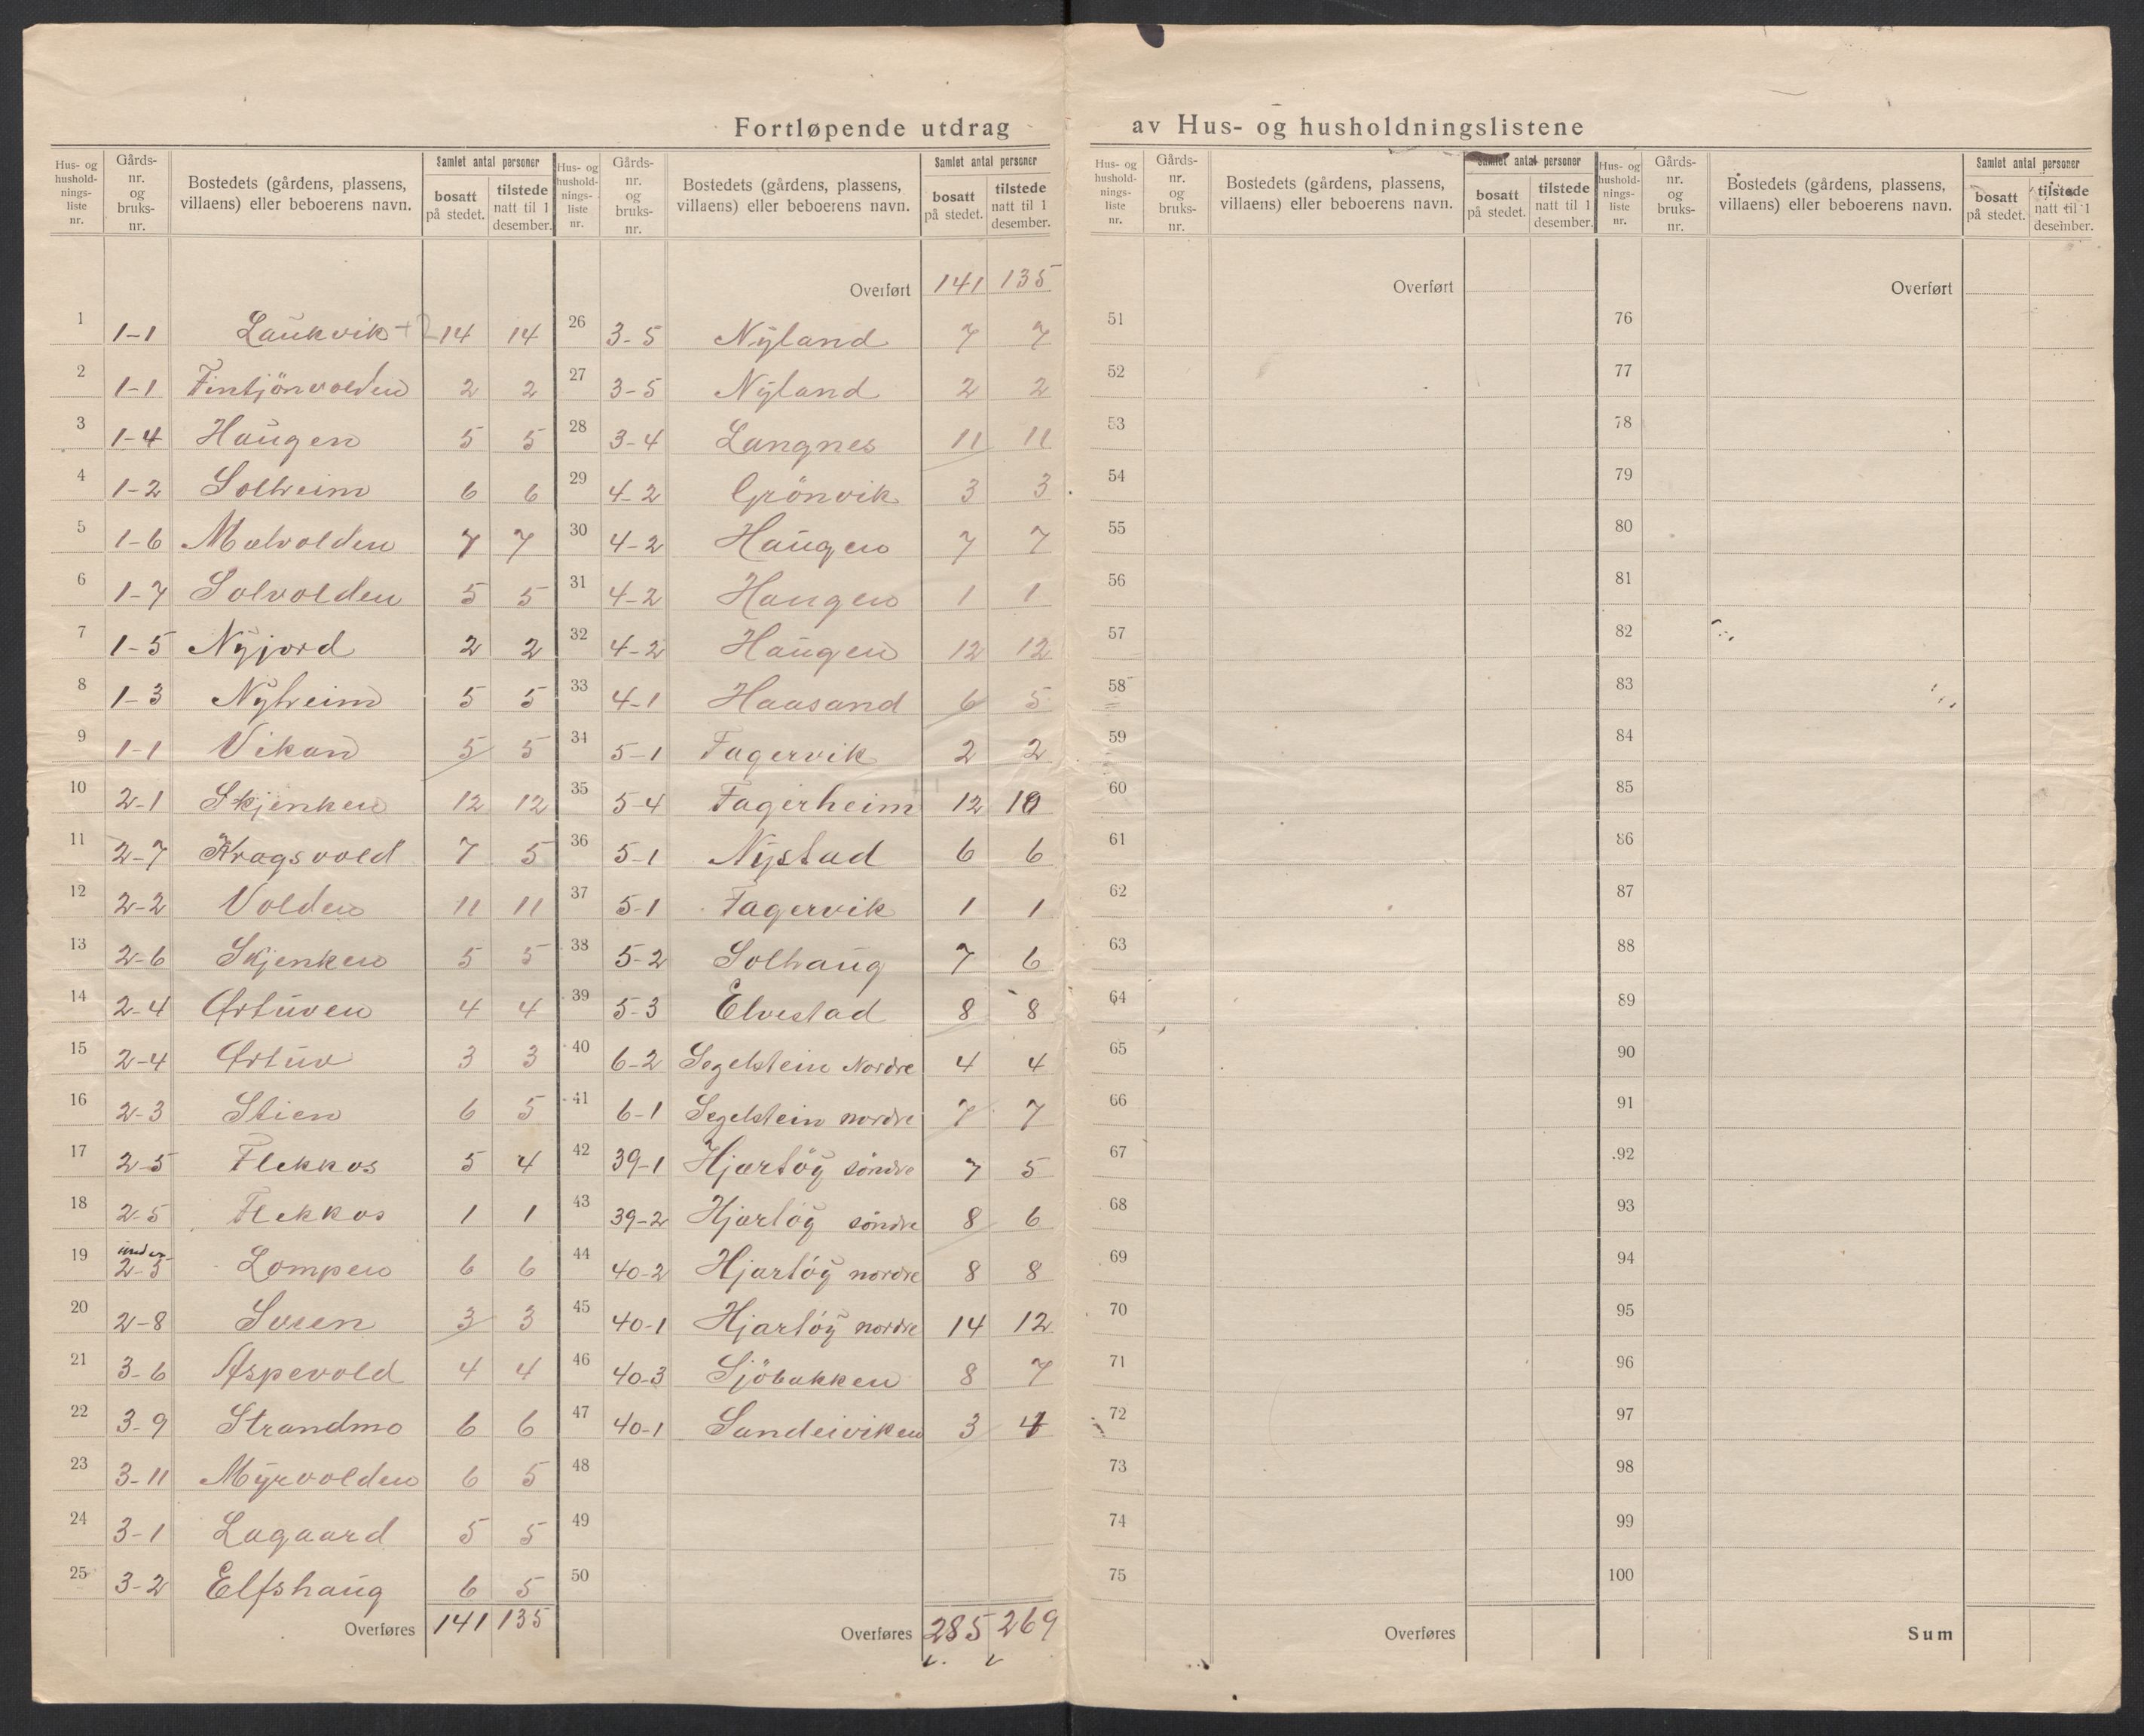 Fortløpende utdrag av Hus- og husholdningslistene
Hus- og husholdningsliste nr. Gårds-nr. og bruks-nr. Bostedets (gårdens, plassens, villaens) eller beboerens navn. Samlet antal personer bosatt på stedet. tilstede natt til 1 desember.
1 1-1 Laukvik +2 14 14
2 1-1 Fintjönvolden 2 2
3 1-4 Haugen 5 5
4 1-2 Solheim 6 6
5 1-6 Mælvolden 7 7
6 1-7 Solvolden 5 5
7 1-5 Nyjord 2 2
8 1-3 Nyheim 5 5
9 1-1 Vikan 5 5
10 2-1 Skjenken 12 12
11 2-7 Kragsvold 7 5
12 2-2 Volden 11 11
13 2-6 Skjenken 5 5
14 2-4 Ørtuven 4 4
15 2-4 Ørtuv 3 3
16 2-3 Stien 6 5
17 2-5 Flekkos 5 4
18 2-5 Flekkos 1 1
19 under 2-5 Lompen 6 6
20 2-8 Sveen 3 3
21 3-6 Aspevold 4 4
22 3-9 Strandmo 6 6
23 3-11 Myrvolden 6 5
24 3-1 Lagaard 5 5
25 3-2 Elfshaug 6 5
Overføres 141 135
Hus- og husholdningsliste nr. Gårds-nr. og bruks-nr. Bostedets (gårdens, plassens, villaens) eller beboerens navn. Samlet antal personer bosatt på stedet. tilstede natt til 1 desember.
Overført 141 135
26 3-5 Nyland 7 7
27 3-5 Nyland 2 2
28 3-4 Langnes 11 11
29 4-2 Grönvik 3 3
30 4-2 Haugen 7 7
31 4-2 Haugen 1 1
32 4-2 Haugen 12 12
33 4-1 Haasand 6 5
34 5-1 Fagervik 2 2
35 5-4 Fagerheim 12 10
36 5-1 Nystad 6 6
37 5-1 Fagervik 1 1
38 5-2 Solhaug 7 6
39 5-3 Elvestad 8 8
40 6-2 Segelstein Nordre 4 4
41 6-1 Segelstein nordre 7 7
42 39-1 Hjartöy söndre 7 5
43 39-2 Hjartöy söndre 8 6
44 40-2 Hjartöy nordre 8 8
45 40-1 Hjartöy nordre 14 12
46 40-3 Sjöbakken 8 7
47 40-1 Sandeiviken 3
48
49
50
Overføres 285 269
Hus- og husholdningsliste nr. Gårds-nr. og bruks-nr. Bostedets (gårdens, plassens, villaens) eller beboerens navn. Samlet antal personer bosatt på stedet. tilstede natt til 1 desember.
Overført
51
52
53
54
55
56
57
58
59
60
61
62
63
64
65
66
67
68
69
70
71
72
73
74
75
Overføres
Hus- og husholdningsliste nr. Gårds-nr. og bruks-nr. Bostedets (gårdens, plassens, villaens) eller beboerens navn. Samlet antal personer bosatt på stedet. tilstede natt til 1 desember.
Overført
76
77
78
79
80
81
82
83
84
85
86
87
88
89
90
91
92
93
94
95
96
97
98
99
100
Sum